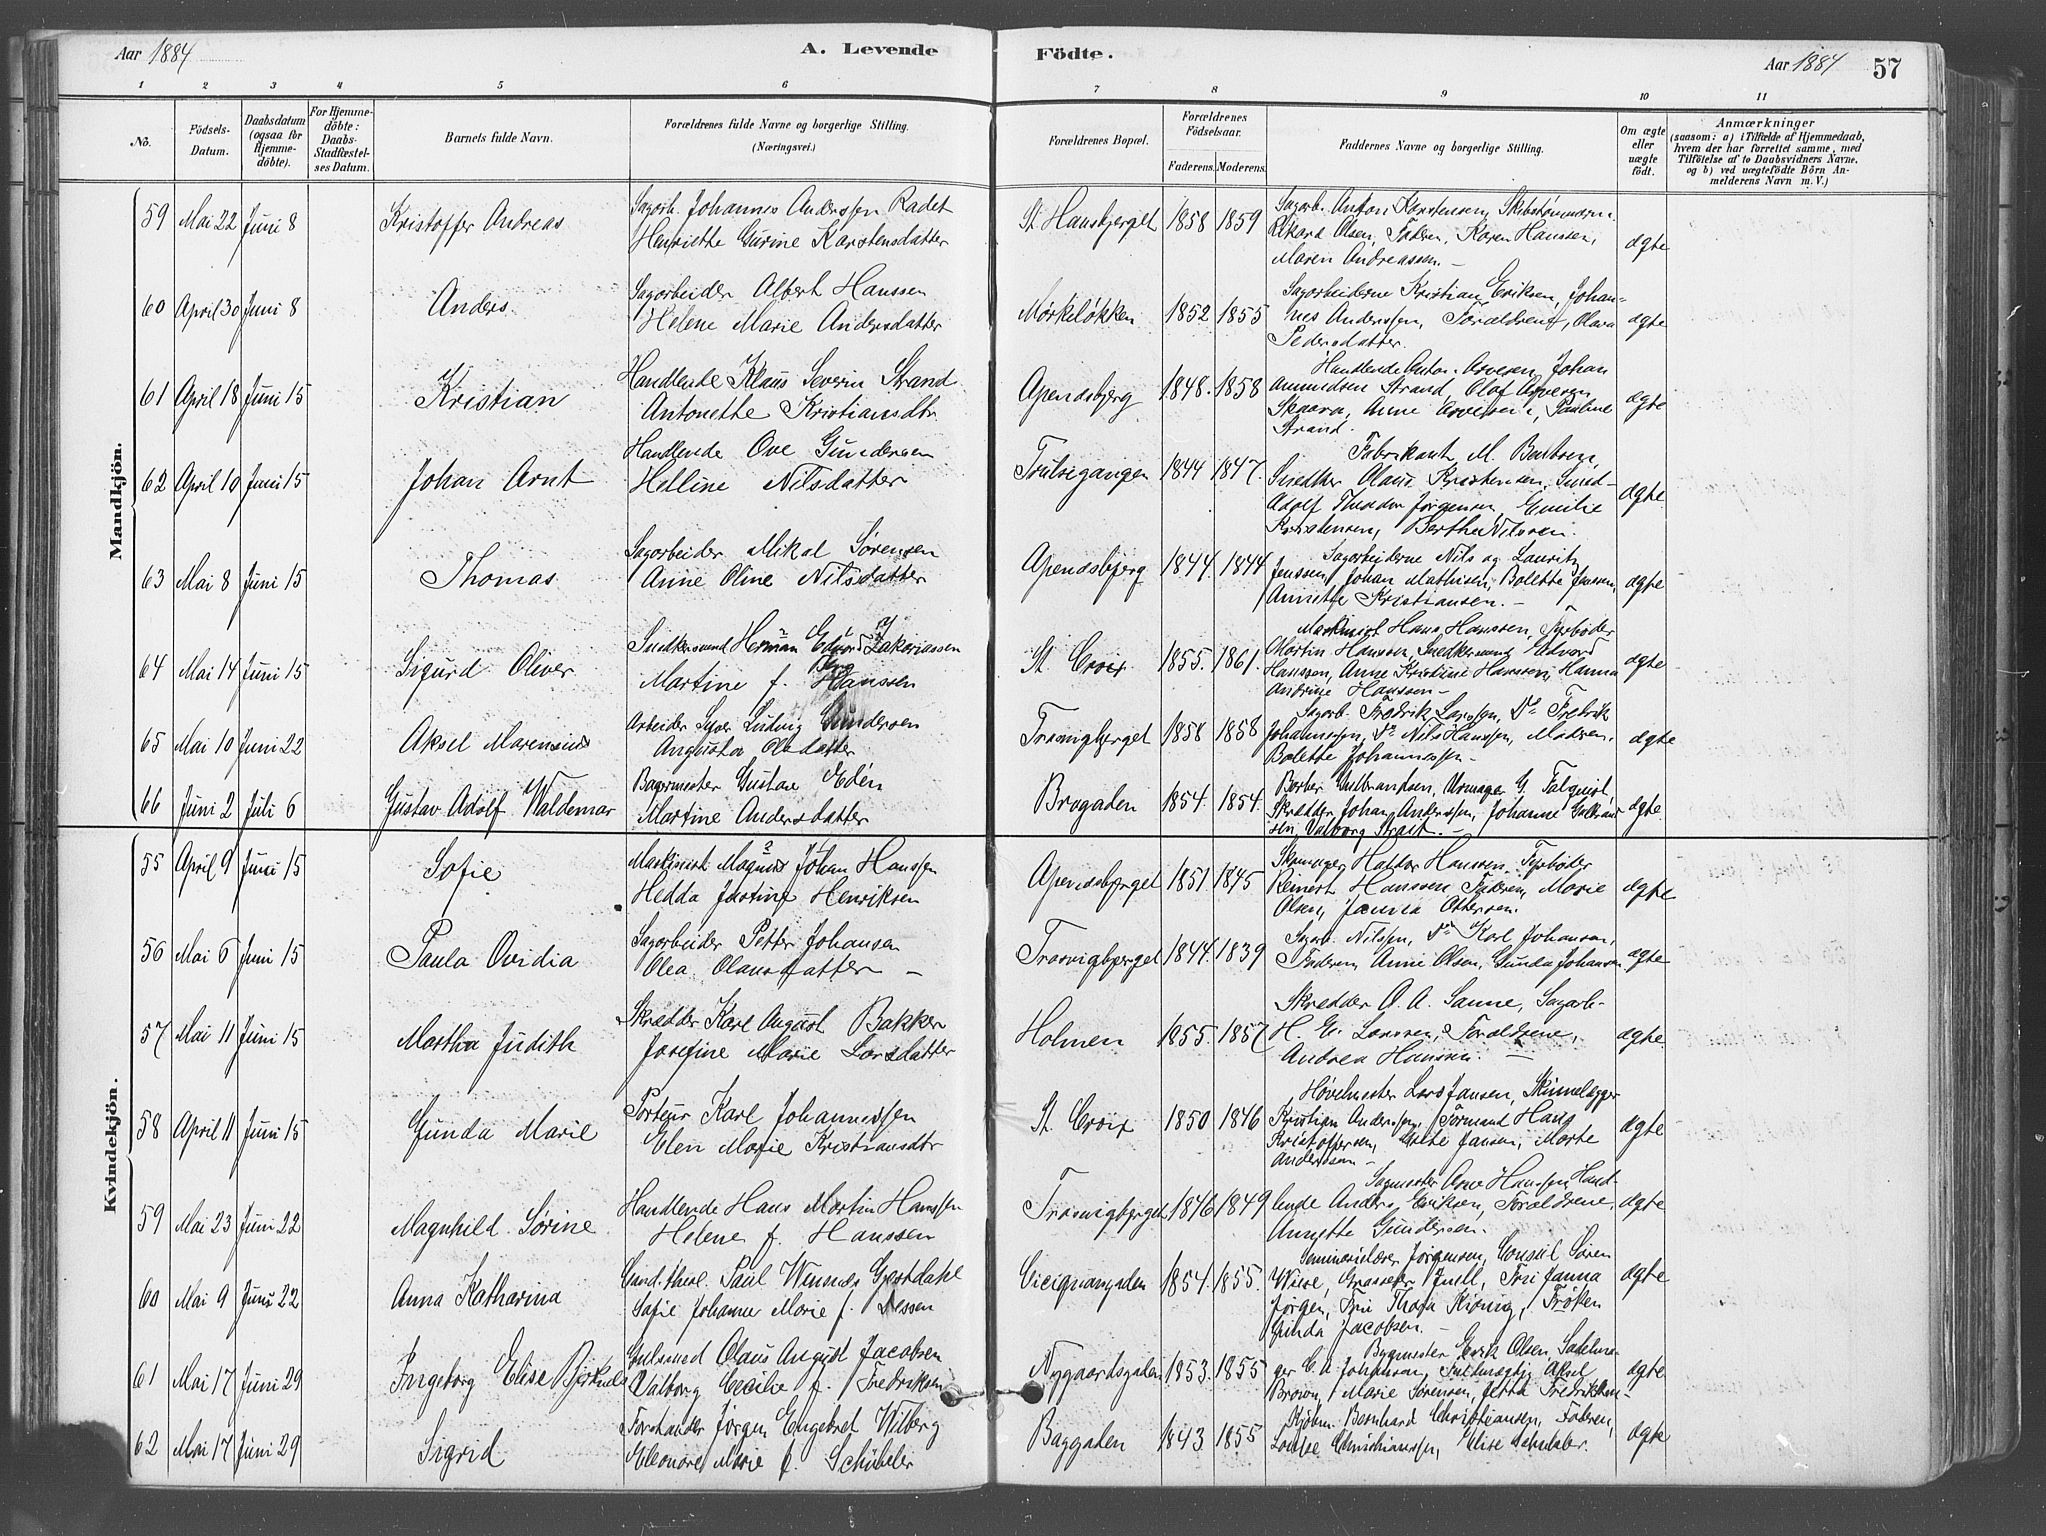 Aar 1884
A. Levende
Födte.
Aar 1884
57
1 2 3 4 5 6 7 8 9 10 11
No.
Födsels-Datum.
Daabsdatum (ogsaa for Hjemme-döbte).
For Hjemme-döbte: Daabs-Stadfæstel-ses Datum.
Barnets fulde Navn.
Forældrenes fulde Navne og borgerlige Stilling.
(Næringsvei.)
Forældrenes Bopæl.
Forældrenes Födselsaar.
Faderens. Moderens.
Faddernes Navne og borgerlige Stilling.
Om ægte eller uægte födt.
Anmærkninger
(saasom: a) i Tilfælde af Hjemmedaab, hvem der har forrettet samme, med Tilföielse af to Daabsvidners Navne, og b) ved uægtefödte Börn An-melderens Navn m. V.)
Mandkjön.
59 Mai 22 Juni 8 Kristoffer Andreas
Sagarb. Johannes Anderssen Radet
Henriette Gurine Karstensdatter
St. Hansbjerget 1858 1859
Sagarb. Anton Karstensen, Skibstømmerm.
Rikard Olsen, Faderen, Karen Hanssen,
Maren Andreassen. –
ægte
60 April 30 Juni 8 Anders.
Sagarbeider Albert Hanssen
Helene Marie Andersdatter
Mørkeløkken 1852 1855
Sagarbeiderne Kristian Eriksen, Johan-
nes Anderssen, Forældrene, Olava
Pedersdatter.
ægte
61 April 18 Juni 15 Kristian
Handlende Klaus Severin Strand
Antonette Kristiansdtr.
Apenesbjerg 1848. 1858
Handlende Anton Arvesen, Johan
Amundsen Strand, Olaf Arvesen
Skaara, Anne Arvesen, Pauline
Strand.
ægte
62 April 10 Juni 15 Johan Arnt
Handlende Ove Gundersen
Helline Nilsdatter
Trulsegangen 1844 1847.
Fabrikant M. Bentsen,
Snedker Olaus Kristensen, Smed
Adolf Theodor Jørgensen, Emilie
Kristensen, Berthe Nilssen.
ægte
63 Mai 8 Juni 15 Thomas
Sagarbeider Mikal Sørensen
Anne Oline Nilsdatter
Apenesbjerg 1844. 1844
Sagarbeiderne Nils og Lauritz
Jenssen, Johan Mathisen, Bolette Jenssen,
Annette Kristiansen. –
ægte
64 Mai 14 Juni 15 Sigurd Oliver
Snedkersvend Herman Edvard Zakariassen
Berg
Martine f. Hanssen
St. Croix 1855. 1861.
Maskinist Hans Hanssen, Fyrbøder
Martin Hanssen, Snedkersvend Edvard
Hanssen, Anne Kristine Hanssen, Hanna
Andrine Hanssen –
ægte
65 Mai 10 Juni 22 Aksel Marensius
Arbeider Syver Ludvig Gundersen
Augusta Olsdatter
Trosvigbjerget 1858 1858
Sagarb. Fredrik Larssen, Do Fredrik
Johannessen, Do Nils Hanssen, Moderen.
Bolette Johannessen –
ægte
66 Juni 2 Juli 6 Gustav Adolf Waldemar
Bagermester Gustav Edén
Martine Andersdatter
Brogaden 1854. 1854.
Barber Gulbrandsen, Urmager G. Falquist,
Skrædder Johan Anderssen, Johanne Gulbrand-
sen, Valborg –
ægte
Kvindekjön.
55 April 9 Juni 15 Sofie
Maskinist Magnus Johan Hanssen
Hedda Justine Henriksen
Apenesbjerget 1851. 1845
Haldor Hanssen, Fyrbøder
Reinert Hanssen, Faderen, Marie
Olsen, Janna Ottersen.
ægte
56 Mai 6 Juni 15 Paula Ovidia
Sagarbeider Petter Johansen
Olea Olausdatter –
Trosvigbjerget 1844. 1839
Sagarb. Nilssen, Do Karl Johansen,
Faderen, Anne Olsen, Gunda Johansen
ægte
57 Mai 11 Juni 15 Martha Judith
Skrædder Karl August Bakker
Josefine Marie Larsdatter
Holmen 1855. 1857
Skrædder O. A. Sanne, Sagarb.
H. E. Larssen, Forældrene,
Andrea Hansen. –
ægte
58 April 11 Juni 15 Gunda Marie
Portør Karl Johannessen
Elen Marie Kristiansdtr
St. Croix 1850 1846
Høvelmester Lars Jansen, Skinnelægger
Kristian Anderssen, Formand Hans
Kristoffersen, Grete Jansen, Marte
Anderssen –
ægte
59 Mai 23 Juni 22 Magnhild Sørine
Handlende Hans Martin Hanssen
Helene f. Hanssen
Trosvigbjerget 1846 1849
Sagmester Arne Hanssen, Hand-
lende Anders Eriksen, Forældrene,
Annette Gundersen.
ægte
60 Mai 9 Juni 22 Anna Katharina
Cand. theol. Paul Wennes Gjertdahl
Sofie Johanne Marie f. Dessen
Cicignongaden 1854. 1855.
Seminarielærer Jørgensen, Consul Søren
Wiese, Grosserer Juell, Fru Janna
Jørgen, Fru Thora Kiønig, Frøken
Ginda Jacobsen. –
ægte
61 Mai 17 Juni 29 Ingeborg Elise Bjerknes
Gulsmed Olaus August Jacobsen
Valborg Cecilie f. Fredriksen
Nygaardsgaden 1853. 1855
Bygmester Erik Olsen, Sadelma-
ger C. A. Johansen, Aksel
Brown, Marie Sørensen, Jetta Fredrikksen
ægte
62 Mai 17 Juni 29 Sigrid
Forstander Jørgen Engebret Wilberg
Eleonore Marie f. Schübeler
Baggaden 1843 1855
Kjøbm. Bernhard Christiansen, Faderen,
Louise Christianssen, Elise
ægte